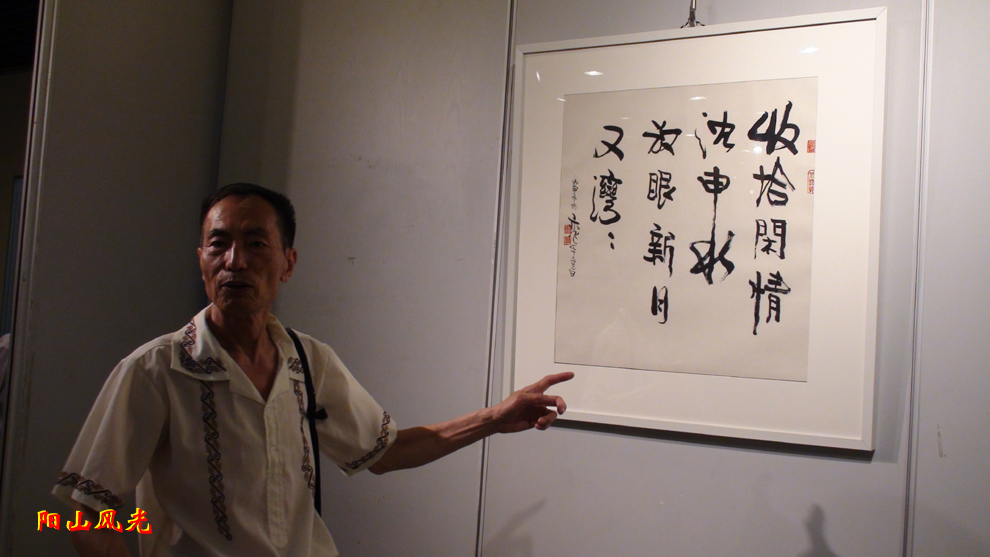 收拾閑情
沈申水
放眼新月
又灣〻
阳山风光